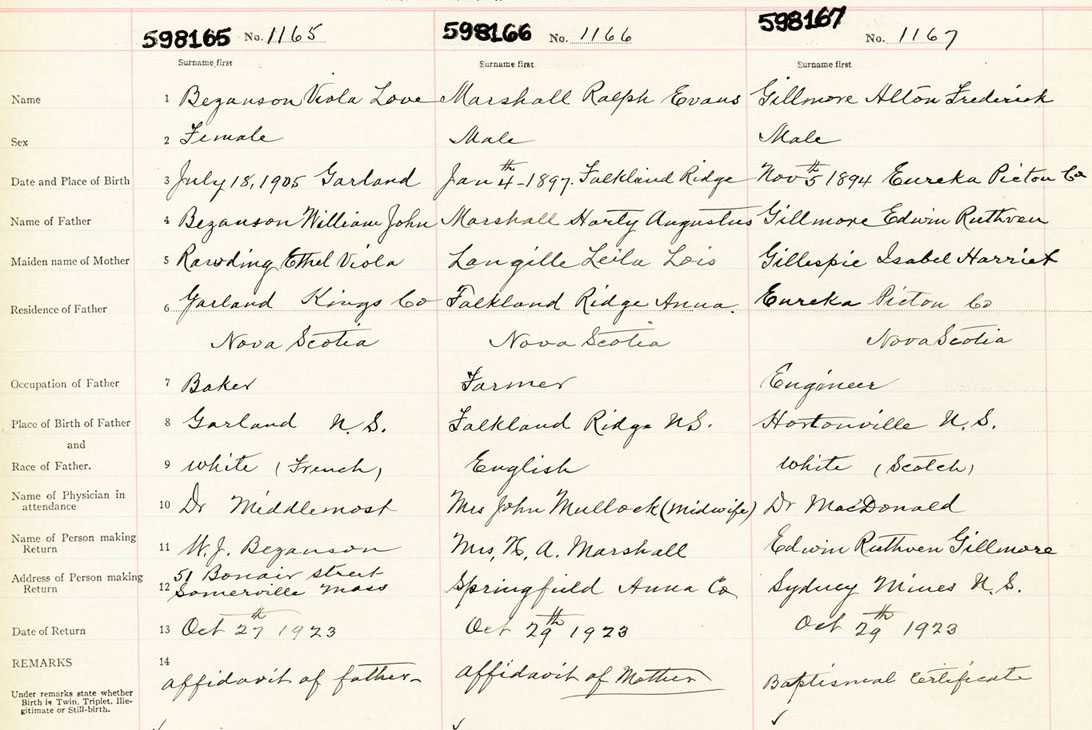 598165 No. 1165 598166 No. 1166 598167 No. 1167
Surname first Surname first Surname first
Name 1 Bezanson Viola Love Marshall Ralph Evans Gillmore Alton Frederick
Sex 2 Female Male Male
Date and Place of Birth 3 July 18, 1905 Garland Jan 4th - 1897. Falkland Ridge Nov 5th 1894 Eureka Picton Co
Name of Father 4 Bezanson William John Marshall Harty Augustus Gillmore Edwin Ruthven
Maiden name of Mother 5 Rawding Ethel Viola Langille Leila Lois Gillespie Isabel Harriet
Residence of Father 6 Garland Kings Co Falkland Ridge Anna. Eureka Picton Co
Nova Scotia Nova Scotia Nova Scotia
Occupation of Father 7 Baker Farmer Engineer
Place of Birth of Father 8 Garland N.S. Falkland Ridge N.S. Hortonville N.S.
and
Race of Father. 9 White (French) English White (Scotch)
Name of Physician in
attendance 10 Dr Middlemost Mrs John Mullock (midwife) Dr MacDonald
Name of Person making
Return 11 W. J. Bezanson Mrs, H, A. Marshall Edwin Ruthven Gillmore
Address of Person making
Return 12 51 Bonair street
Somerville Mass Springfield Anna Co Sydney Mines N.S.
Date of Return 13 Oct 27th 1923 Oct 29th 1923 Oct 29th 1923
REMARKS 14 affidavit of father affidavit of Mother Baptismal Certificate
Under remarks state whether
Birth is Twin, Triplet, Ille-
gitimate or Still-birth.